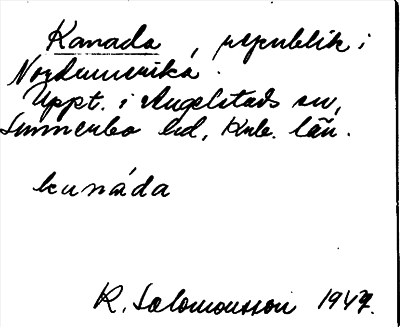 Kanada, republik i
Nordamerika.
Uppt. i Angelstads sn,
Sunnerbo hd, Krb. län.
kunáda
R. Salomonsson 1947.